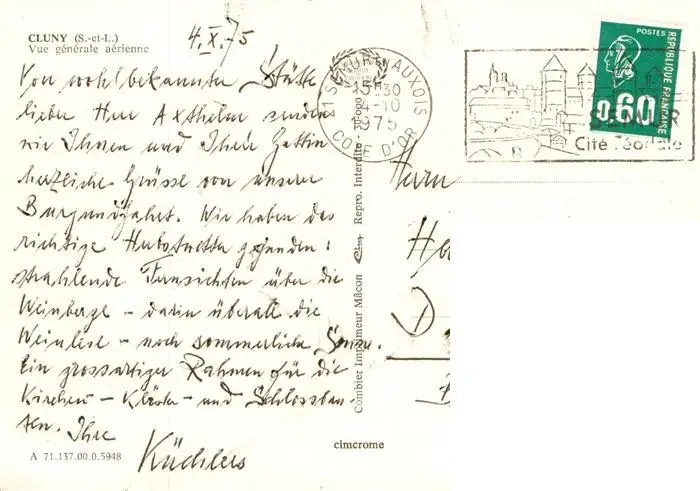 CLUNY (S.-et-L.)
Vue générale aérienne
4.X.75
Von wohlbekannter Stätte
lieber Herr Axthelm senden
wir Ihnen und Ihrer Gattin
herzliche Grüsse von unserer
Burgundfahrt. Wir haben das
richtige Herbstwetter gefunden:
strahlende Fernsichten über die
Weinberge – darin überall die
Weinlese – noch sommerliche Sonne.
Ein grossartiger Rahmen für die
Kirchen – Klöster – und Schlossbau-
ten. Ihre
Küchlers
A 71.137.00.0.5948
cimcrome
Combier Imprimeur Mâcon Cim Repro. Interdite
21 SEMUR-EN-AUXOIS
15H30
4-10
1975
COTE D'OR
SEMUR
Cité Féodale
POSTES
REPUBLIQUE FRANÇAISE
0,60
Herrn